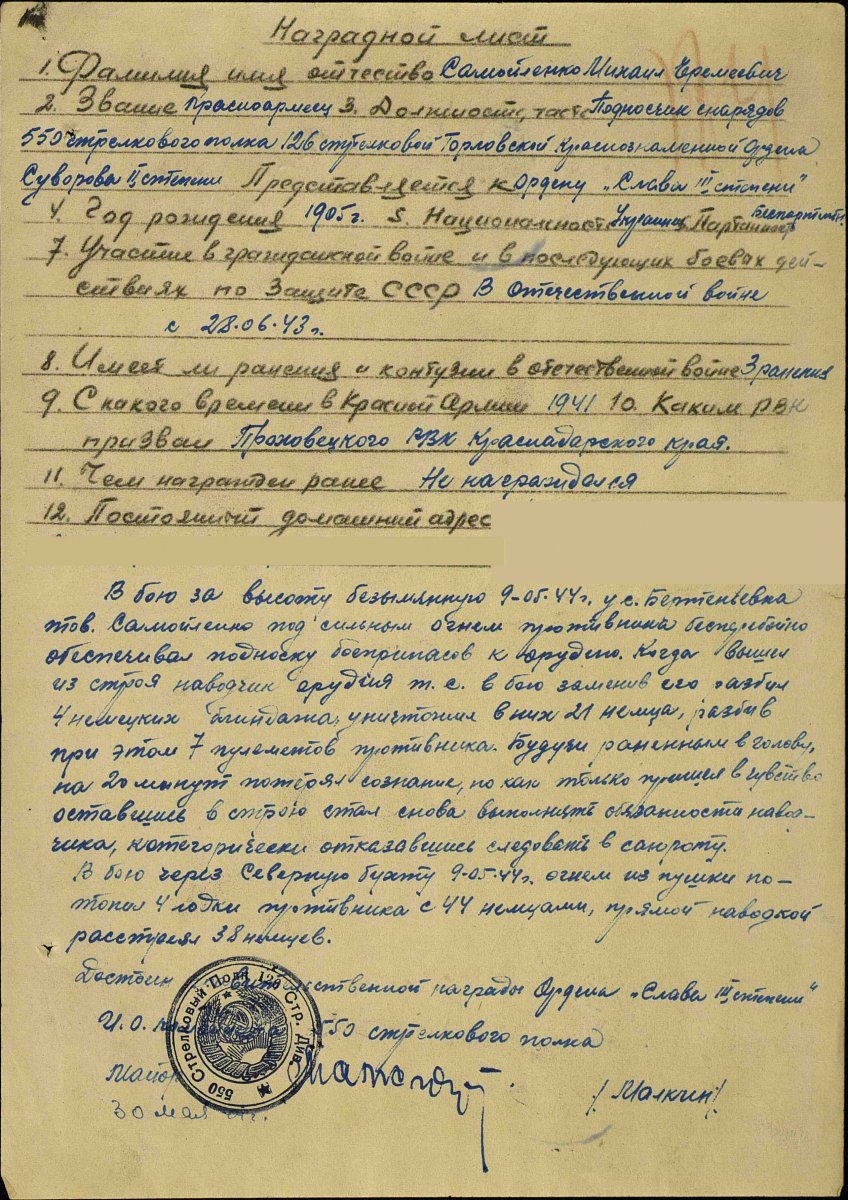 Наградной лист
1. Фамилия имя отчество Самойленко Михаил Еремеевич
2. Звание Красноармеец 3. Должность, часть Подносчик снарядов
550 стрелкового полка 126 стрелковой Горловской Краснознаменной Ордена
Суворова II степени Представляется к Ордену „Слава III степени"
4. Год рождения 1905 г. 5. Национальность Украинец Партийность Беспартийн.
7. Участие в гражданской войне и в последующих боевых дей-
ствиях по защите СССР В Отечественной войне
с 28.06.43 г.
8. Имеет ли ранения и контузии в отечественной войне 3 ранения
9. С какого времени в Красной Армии 1941 10. Каким РВК
призван РВК Краснадарского края.
11. Чем награжден ранее Не награждался
12. Постоянный домашний адрес
В бою за высоту безымянную 9-05-44 г. у с.
тов. Самойленко под сильным огнем противника бесперебойно
обеспечивал подноску боеприпасов к орудию. Когда вышел
из строя наводчик орудия т. С. в бою заменив его разбил
4 немецких блиндажа, уничтожил в них 21 немца, разбив
при этом 7 пулеметов противника. Будучи раненным в голову,
на 20 минут потерял сознание, но как только пришел в чувство
оставшись в строю стал снова выполнять обязанности навод-
чика, категорически отказавшись следовать в санроту.
В бою через Северную бухту 9-05-44 г. огнем из пушки по-
топил 4 лодки противника с 44 немцами, прямой наводкой
расстрелял 38 немцев.
Достоин Ордена „Слава III степени"
правительственной награды
И.О. командира 550 стрелкового полка
Майор /Малкин/
30 мая 44 г.
550 Стрелковый Полк 126 Стр. Див.